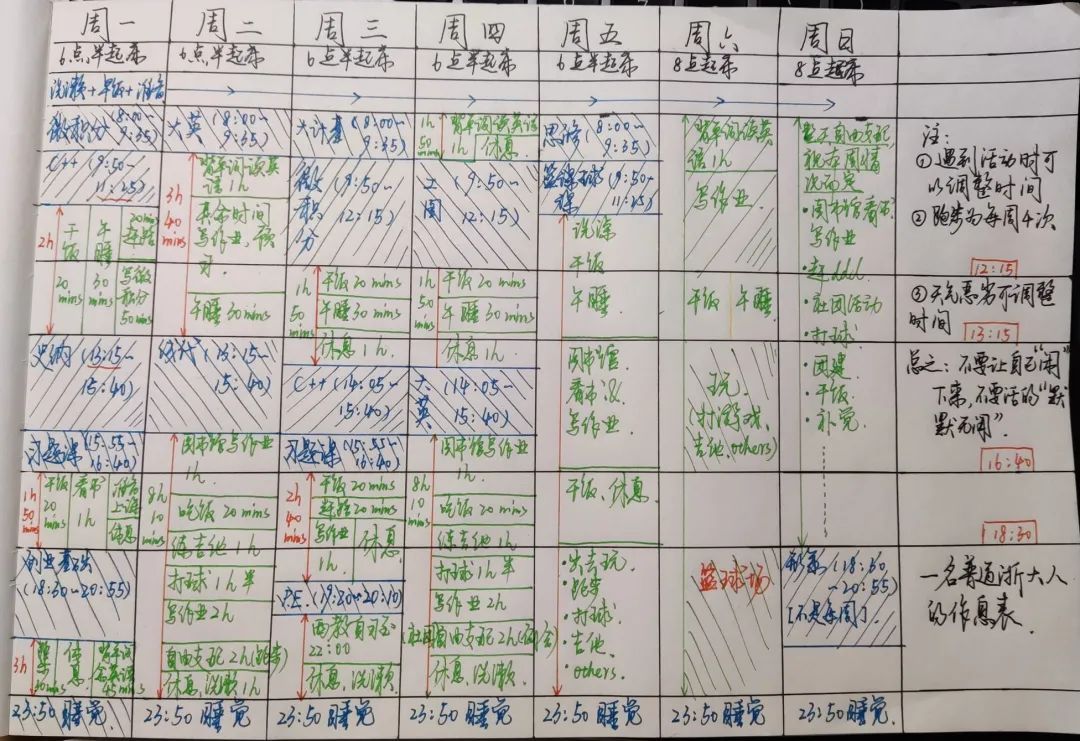 周一
周二
周三
周四
周五
周六
周日
6点半起床
6点半起床
6点半起床
6点半起床
6点半起床
8点起床
8点起床
洗漱+早饭+准备
微积分(8:00~
9:35)
C++(9:50~
11:25)
2h
干饭
20
mins
午睡
30
mins
20mins
写微
积分
50mins
史纲(13:15~
15:40)
习题课(15:55~
16:40)
1h
50
mins
干饭
20
mins
看书
1h
准备
上课
休息
创业基础
(18:30~20:55)
3h
休息
45mins
23:50睡觉
大英(8:00~
9:35)
3h
40
mins
背单词读英
语1h
其余时间
写作业,预
习.
午睡30mins
线代(13:15~
15:40)
8h
10
mins
图书馆写作业
1h.
吃饭20mins
练吉他1h
打球1h半
写作业2h
自由支配2h(跑步)
休息,洗漱1h
23:50睡觉
大计基(8:00~
9:35)
微积分
(9:50~
12:15)
1h
50
mins
干饭20mins
午睡30mins
休息1h.
C++(14:05~
15:40)
习题课(15:55~
16:40)
2h
40
mins
干饭20mins
写作业
1h.
休息
P.E.(19:20~20:10)
西教自习至
22:00
休息,洗漱.
23:50睡觉
1h
50
mins
背单词读英语
1h
休息
工图
(9:50~
12:15)
1h
50
mins
干饭20mins
午睡30mins
休息1h.
大英
(14:05~
15:40)
8h
10
mins
图书馆写作业
1h.
吃饭20mins
练吉他1h
打球1h半
写作业2h
自由支配2h
休息,洗漱1h
23:50睡觉
思修(8:00~
9:35)
篮球课
(9:50~
11:25)
洗澡
干饭
午睡
图书馆
看书&
写作业
干饭、休息
出去玩.
·跑步
·打球
·吉他
·others.
23:50睡觉
背单词读英
语1h
写作业.
干饭 午睡
玩
(打游戏、
吉他,others)
篮球场
23:50睡觉
整天自由支配,
视本周情
况而定
·图书馆看书/
写作业
·社团活动
·打球
·团建
·干饭
·补觉
(18:30
~20:55)
[不是每周]
23:50睡觉.
注:
①遇到活动时可
以调整时间
②跑步为每周4次
12:15
③天气恶劣可调整
时间
13:15
总之:不要让自己"闲"
下来,不要活的"默
默无闻".
16:40
18:30
一名普通浙大人
的作息表.